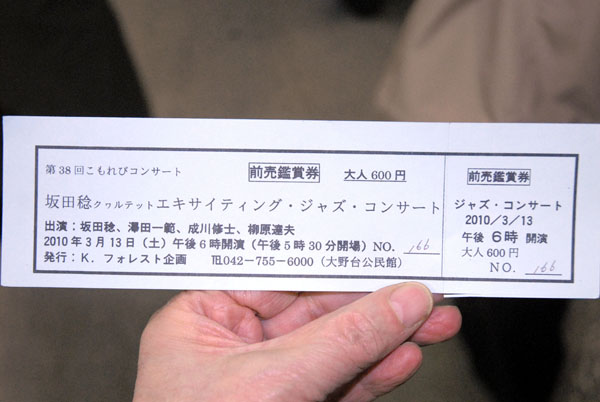 第38回こもれびコンサート 前売鑑賞券 大人600円
坂田稔クヮルテットエキサイティング・ジャズ・コンサート
出演：坂田稔、澤田一範、成川修士、柳原達夫
2010年3月13日（土）午後6時開演（午後5時30分開場）NO. 166
発行：K．フォレスト企画 ℡042－755－6000（大野台公民館）
前売鑑賞券
ジャズ・コンサート
2010／3／13
午後 6時 開演
大人600円
NO. 166